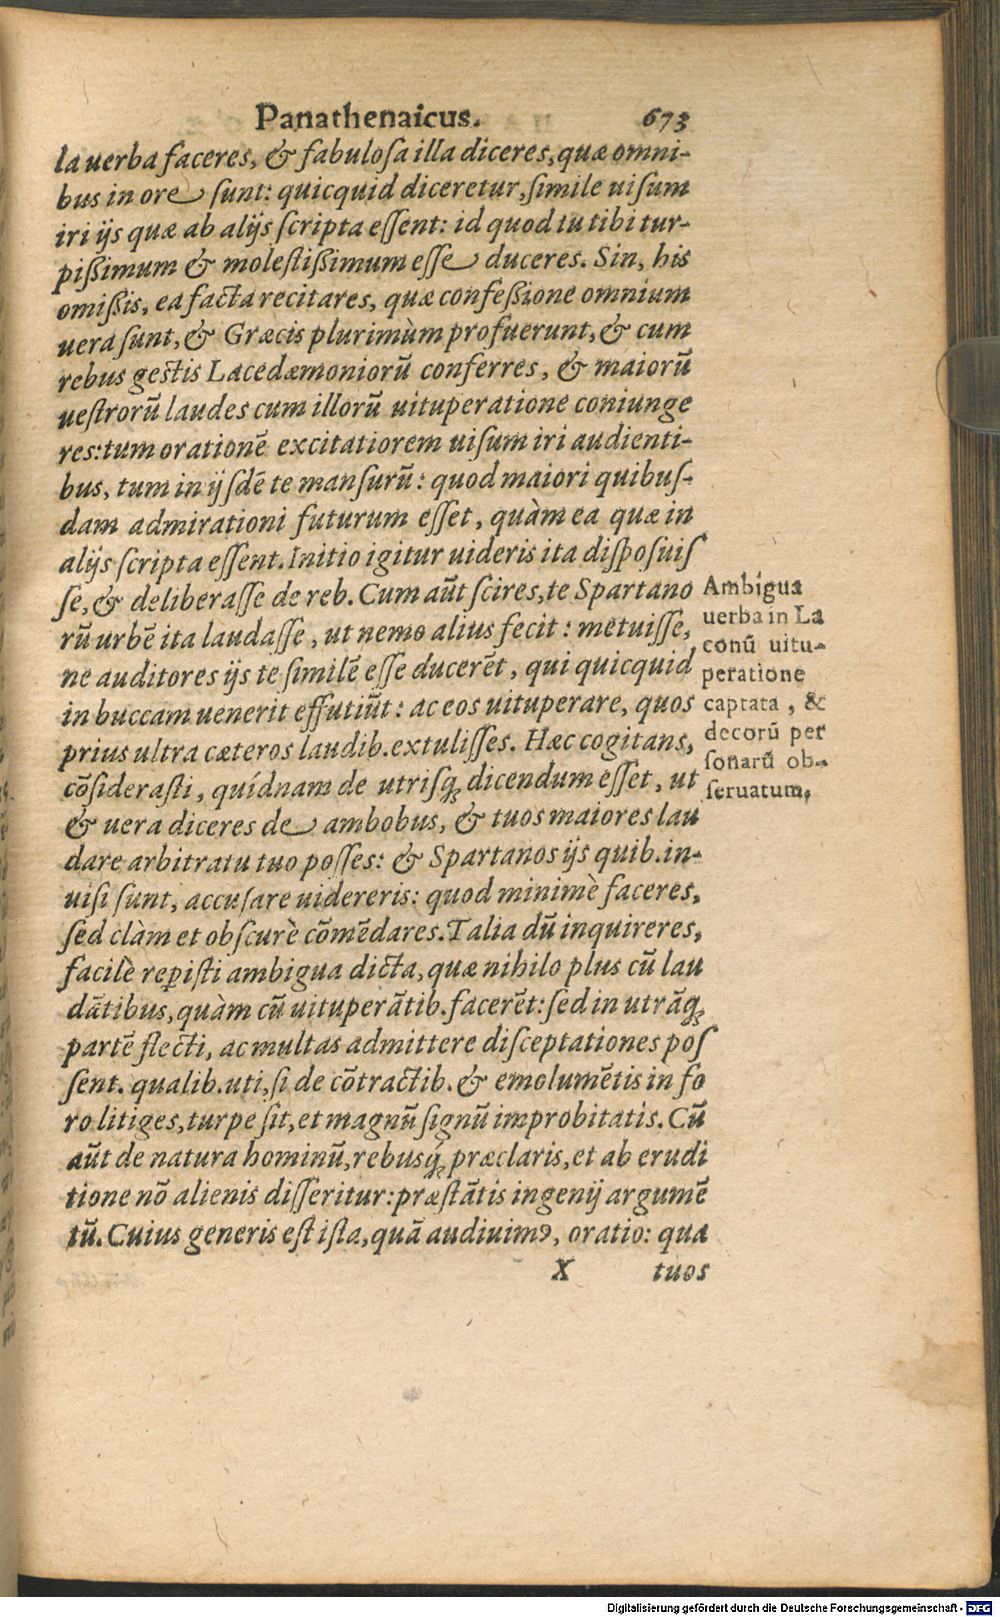 Panathenaicus. 673
la uerba faceres, & fabulosa illa diceres, quæ omni-
bus in ore sunt: quicquid diceretur, simile uisum
iri ijs quæ ab alijs scripta essent: id quod tu tibi tur-
pißimum & molestißimum esse duceres. Sin, his
omißis, ea facta recitares, quæ confeßione omnium
uera sunt, & Græcis plurimùm profuerunt, & cum
rebus gestis Lacedæmoniorũ conferres, & maiorũ
uestrorũ laudes cum illorũ uituperatione coniunge
res: tum orationẽ excitatiorem uisum iri audienti-
bus, tum in ijsdẽ te mansurũ: quod maiori quibus-
dam admirationi futurum esset, quàm ea quæ in
alijs scripta essent. Initio igitur uideris ita disposuis
se, & deliberasse de reb. Cum aũt scires, te Spartano
rũ urbẽ ita laudasse, ut nemo alius fecit: metuisse,
ne auditores ijs te similẽ esse ducerẽt, qui quicquid
in buccam uenerit effutiũt: ac eos uituperare, quos
prius ultra cæteros laudib. extulisses. Hæc cogitans,
cõsiderasti, quídnam de utrisq; dicendum esset, ut
& uera diceres de ambobus, & tuos maiores lau
dare arbitratu tuo posses: & Spartanos ijs quib. in-
uisi sunt, accusare uidereris: quod minimè faceres,
sed clàm et obscurè cõmẽdares. Talia dũ inquireres,
facilè reꝑisti ambigua dicta, quæ nihilo plus cũ lau
dãtibus, quàm cũ uituperãtib. facerẽt: sed in utrãq;
partẽ flecti, ac multas admittere disceptationes pos
sent. qualib. uti, si de cõtractib. & emolumẽtis in fo
ro litiges, turpe sit, et magnũ signũ improbitatis. Cũ
aũt de natura hominũ, rebusq́; præclaris, et ab erudi
tione nõ alienis disseritur: præstãtis ingenij argumẽ
tũ. Cuius generis est ista, quã audiuimꝰ, oratio: qua
X tuos
Ambigua
uerba in La
conũ uitu-
peratione
captata, &
decorũ per
sonarũ ob-
seruatum.
Digitalisierung gefördert durch die Deutsche Forschungsgemeinschaft - DFG